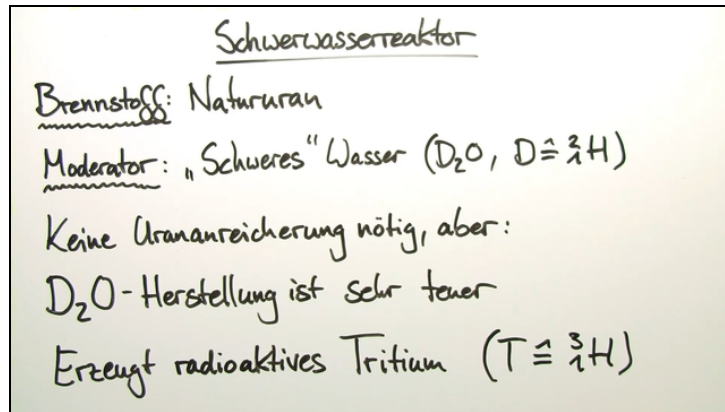 Schwerwasserreaktor
Brennstoff: Natururan
Moderator: „Schweres“ Wasser (D₂O, D ≙ ²₁H)
Keine Urananreicherung nötig, aber:
D₂O-Herstellung ist sehr teuer
Erzeugt radioaktives Tritium (T ≙ ³₁H)